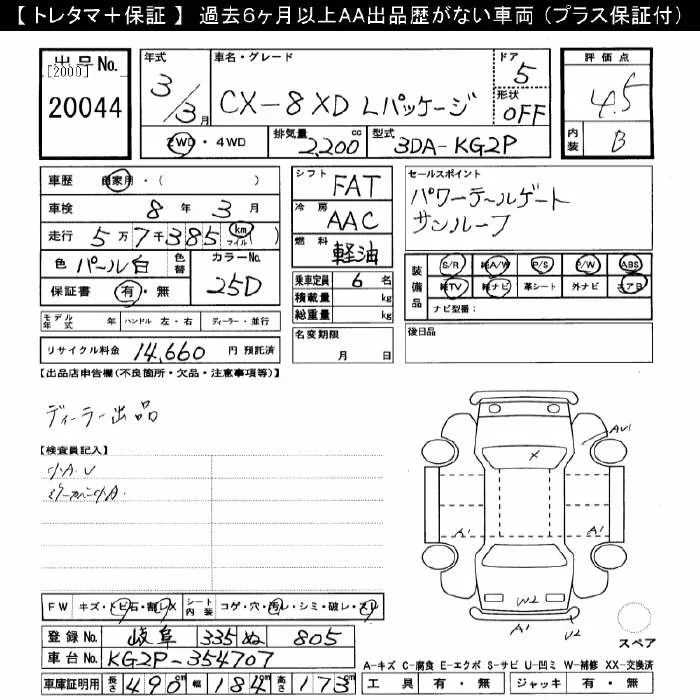 【 トレタマ＋保証 】 過去6ヶ月以上AA出品歴がない車両 （プラス保証付）
出品No.
[2000]
20044
年式
3/3月
車名・グレード
CX-8 XD Lパッケージ
ドア
5
形状
OFF
評価点
4.5
内装
B
2WD・4WD
排気量
2,200cc
型式
3DA-KG2P
車歴
自家用・（　）
車検
8年3月
走行
5万7千385 km マイル（　）
色
パール白
色替
カラーNo.
25D
保証書
有・無
シフト
FAT
冷房
AAC
燃料
軽油
乗車定員 6名
積載量 kg
総重量 kg
セールスポイント
パワーテールゲート
サンルーフ
装備品
S/R 純A/W P/S P/W ABS
純TV 純ナビ 革シート 外ナビ エアB
ナビ型番：
モデル年式 年 ハンドル 左・右 ディーラー・並行
名変期限
月 日
後日品
リサイクル料金 14,660 円 預託済
【出品店申告欄(不良箇所・欠品・注意事項等)】
ディーラー出品
【検査員記入】
小A.U
AU1
X
A1
A1
W2
A1
U2
スペア
FW キズ・トビ石・割レX シート内装 コゲ・穴・汚レ・シミ・破レ・スレ
登録No. 岐阜 335 ぬ 805
車台No. KG2P-354707
A-キズ C-腐食 E-エクボ S-サビ U-凹ミ W-補修 XX-交換済
車庫証明用 長さ 490cm 幅 184cm 高さ 173cm
工具 有・無 ジャッキ 有・無